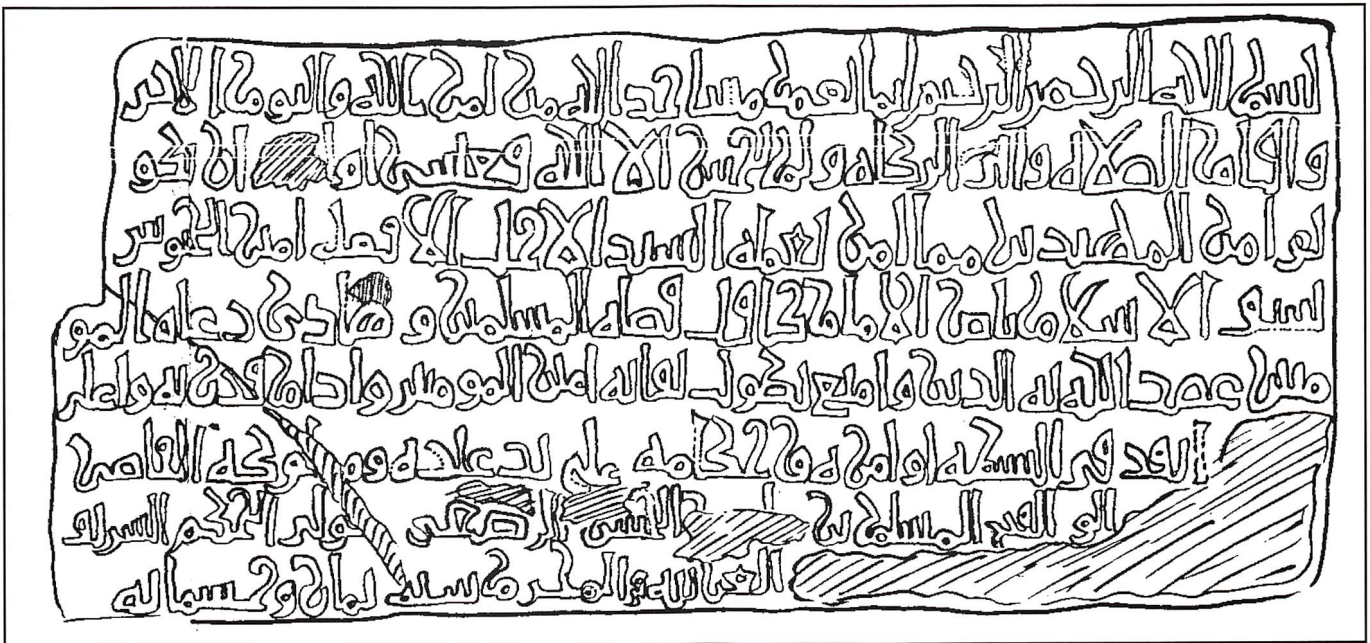 بسم الله الرحمن الرحيم انما يعمر مساجد الله من امن بالله واليوم الاخر
واقام الصلاه واتى الزكاه ولم يخش الا الله فعسى اولـ ان يكو
نوا من المهتدين مما امر بعمله السيد الاجل الافضل امير الجيوش
سيف الاسلام ناصر الامام كافل قضاه المسلمين وهادي دعاه المو
منين عضد الله به الدين وامتع بطول بقائه امير المومنين وادام قدرته واعلى
في اوامره واحكامه على يد عبده ومملوكه القاضي
ابو الفتح المسلم بن الحكم الشريف
في المحرم سنه ثمان وخمسمائه